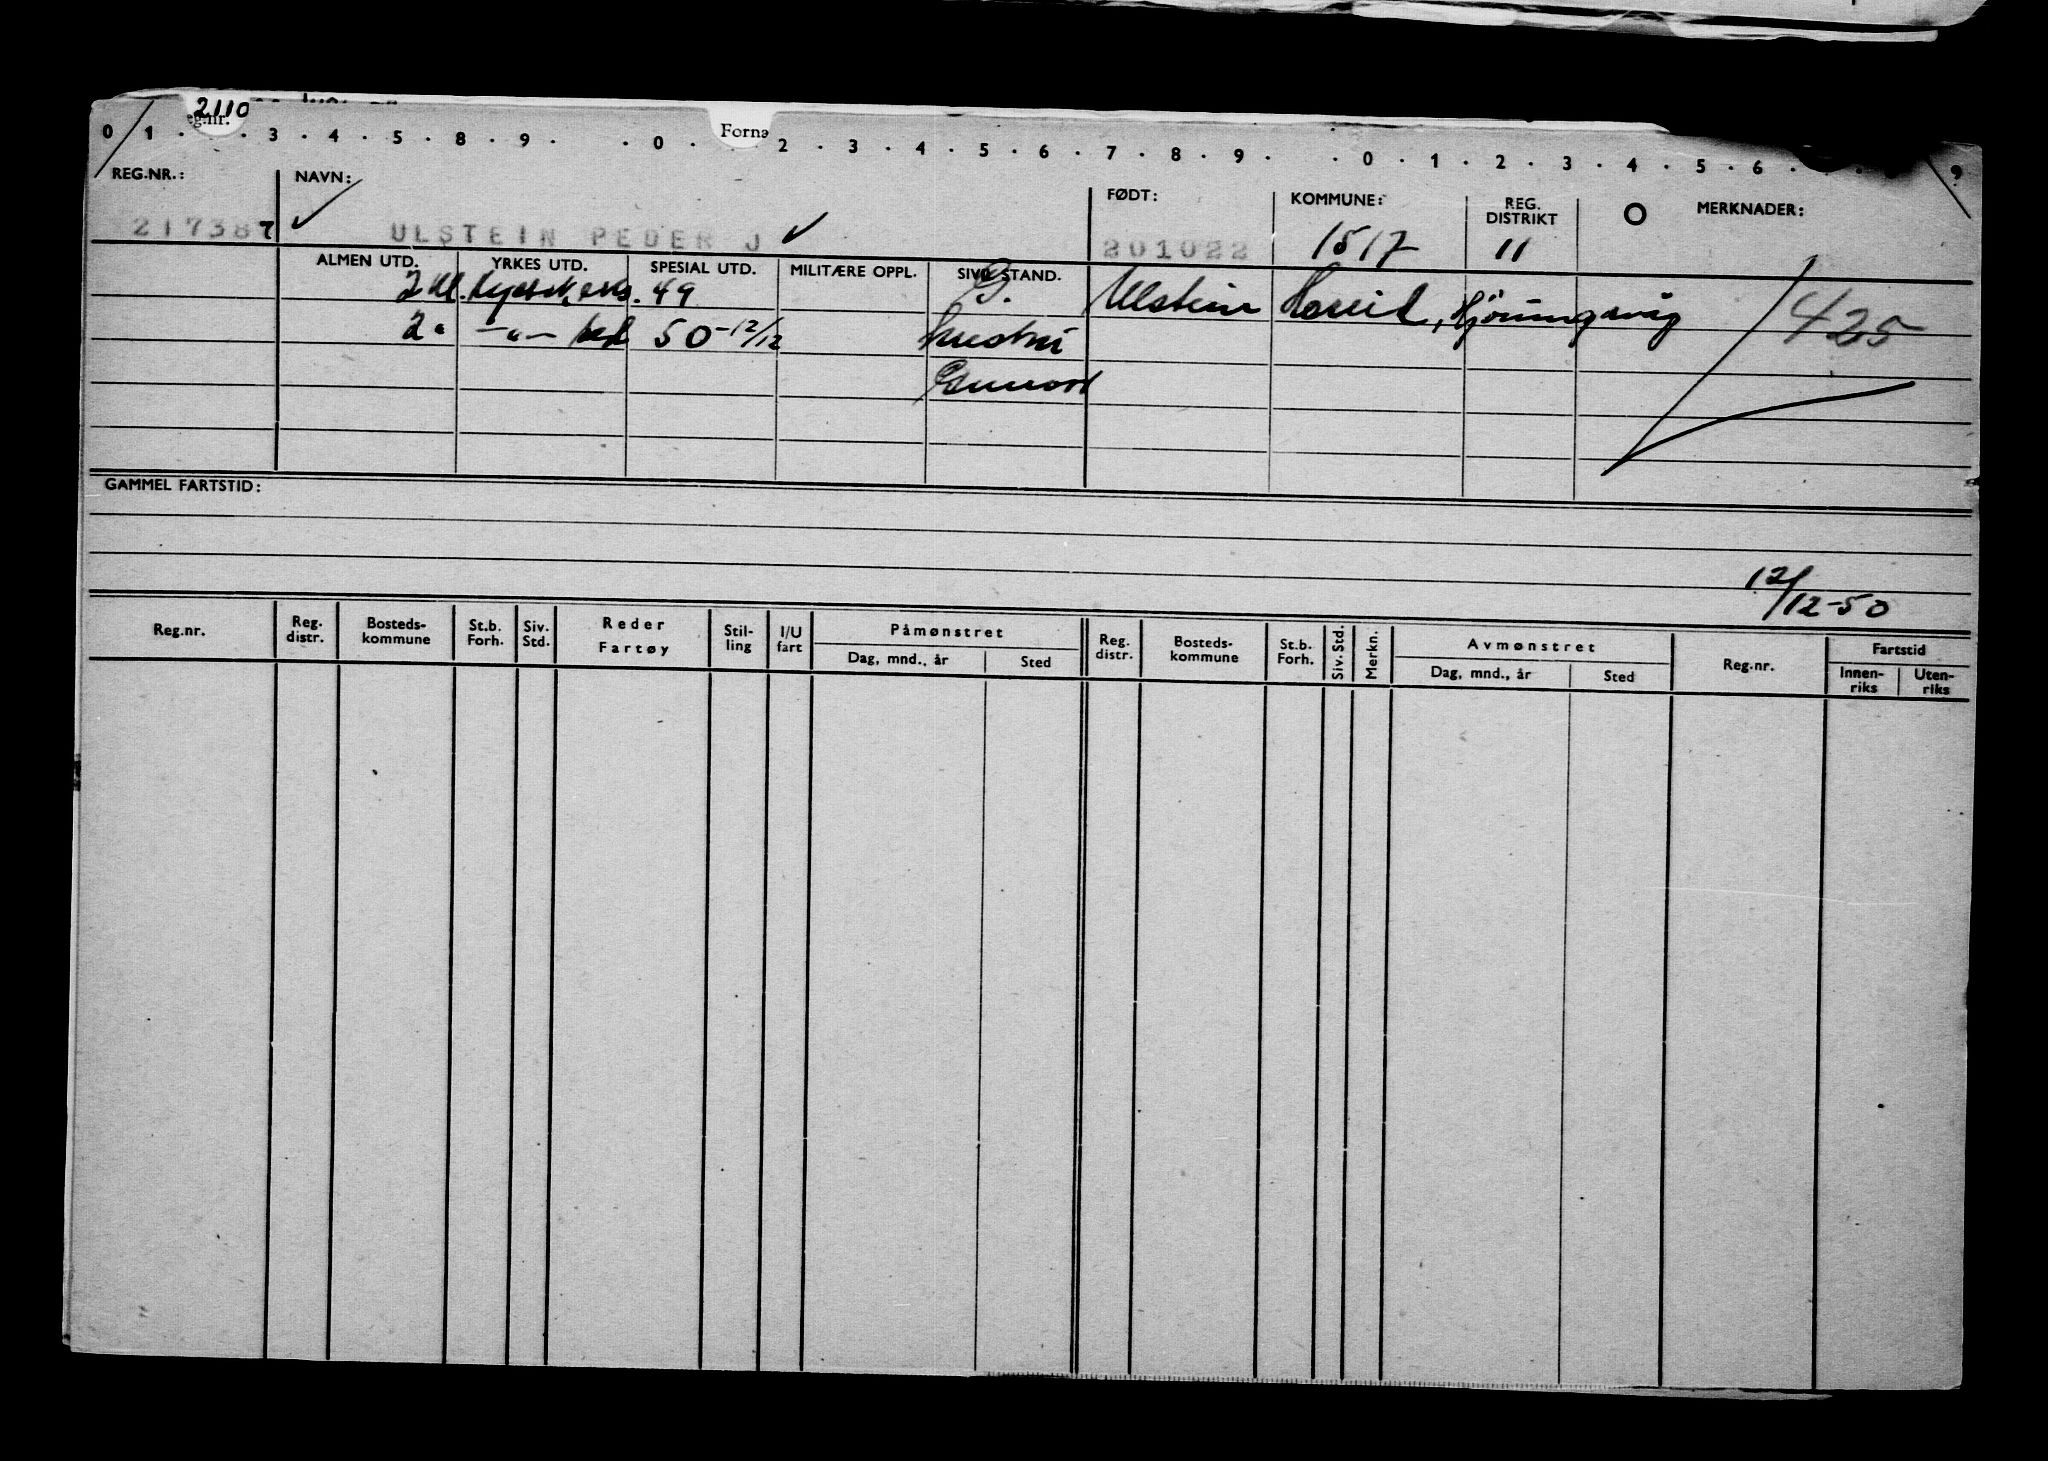 2110
eg.nr.
Forna
0 1 . . 3 . 4 . 5 . 8 . 9 . . 0 . 2 . 3 . 4 . 5 . 6 . 7 . 8 . 9 . . 0 . 1 . 2 . 3 . 4 . 5 . 6 . 9
REG.NR.: NAVN: FØDT: KOMMUNE: REG. DISTRIKT O MERKNADER:
217387 ULSTEIN PEDER J 201022 1517 11
ALMEN UTD. YRKES UTD. SPESIAL UTD. MILITÆRE OPPL. SIVILSTAND.
2 kl. kystsk. eks. 49 G. Ulstein Hareid, Hjörungavåg 425
2 " —"— 50 - 12/12
Gunvor
GAMMEL FARTSTID:
12/12-50
Reg.nr. Reg. distr. Bosteds-kommune St.b. Forh. Siv. Std. Reder Fartøy Stil-ling I/U fart Påmønstret Dag, mnd., år Sted Reg. distr. Bosteds-kommune St.b. Forh. Siv. Std. Merkn. Avmønstret Dag, mnd., år Sted Reg.nr. Fartstid Innen-riks Uten-riks